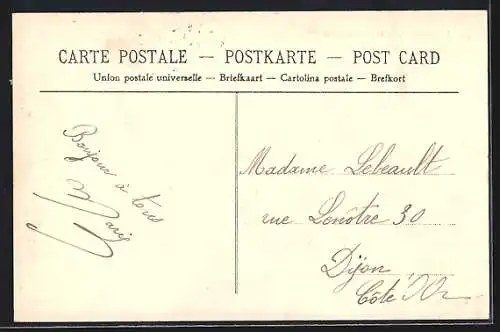 CARTE POSTALE — POSTKARTE — POST CARD
Union postale universelle — Briefkaart — Cartolina postale — Brefkort
Bonjour à tous
Marie
Madame Lebeault
rue Lenôtre 30
Dijon
Côte d'Or